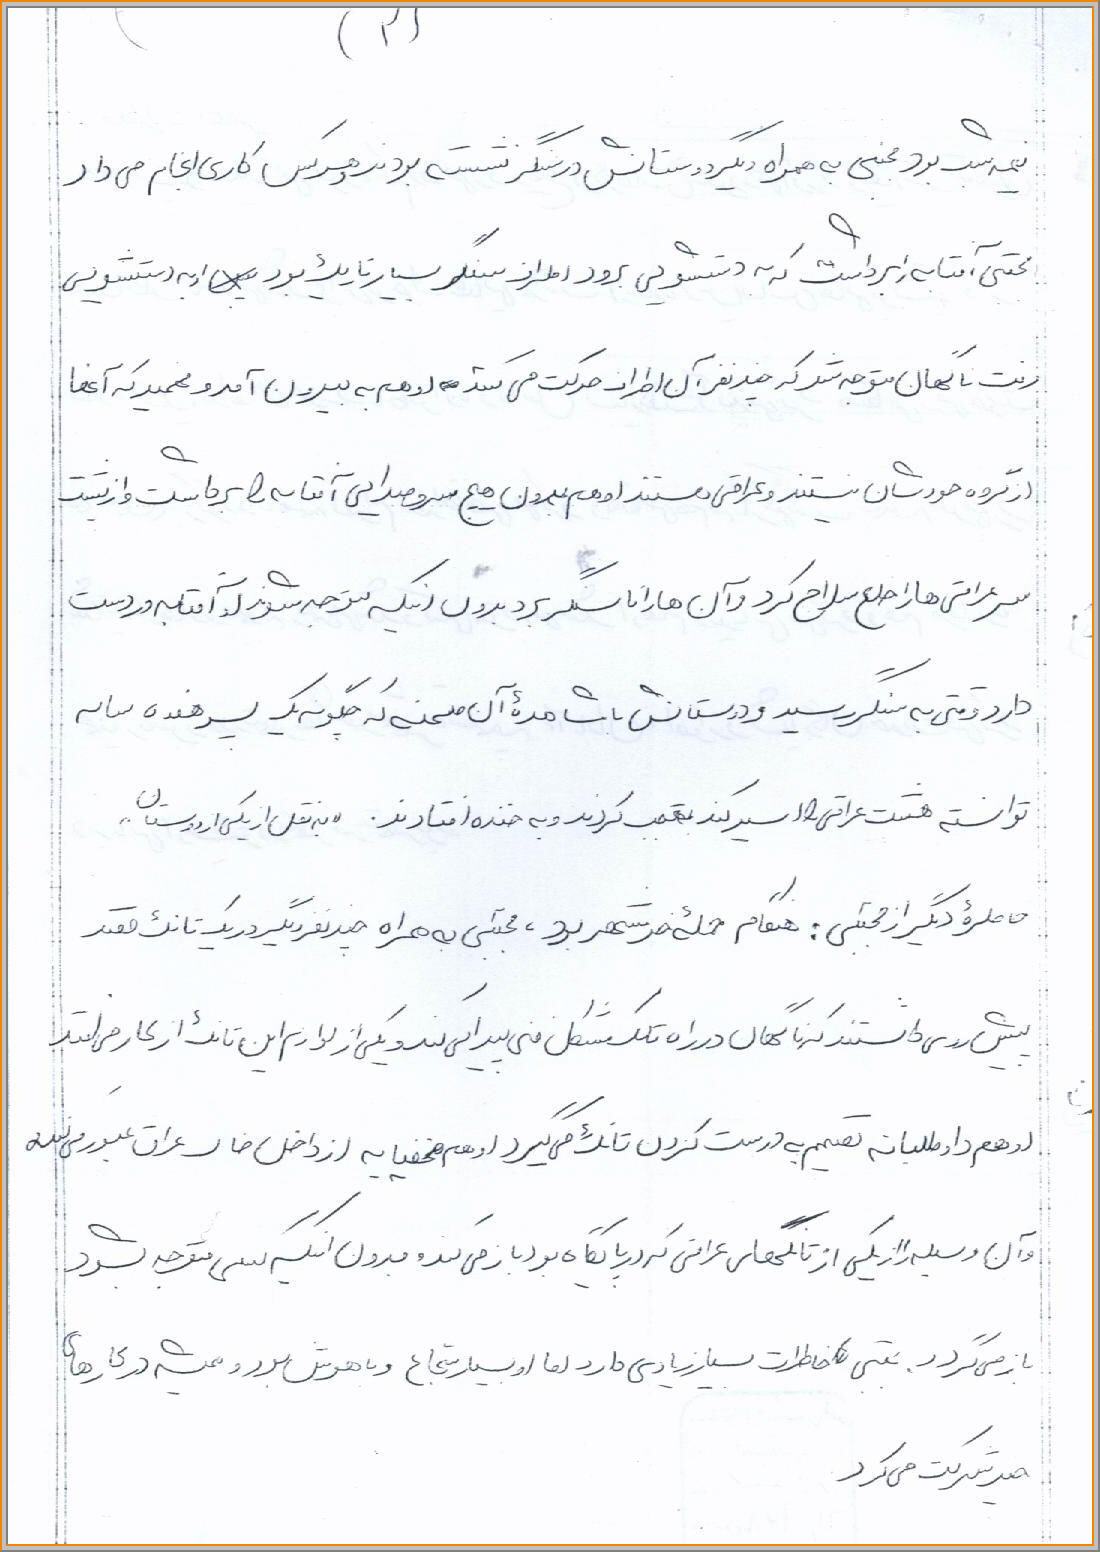 (۲)
نیمه شب بود مجتبی به همراه دیگر دوستانش در سنگر نشسته بودند و هر کس کاری انجام می داد
مجتبی آفتابه را برداشت که به دستشویی برود اطراف سنگر بسیار تاریک بود او به دستشویی
رفت ناگهان متوجه شد که چند نفر آن اطراف حرکت می کنند او هم به بیرون آمد و فهمید که آنها
از گروه خودشان نیستند و عراقی هستند او هم بدون هیچ سر و صدایی آفتابه را برداشت و از پشت
سر عراقی ها را خلع سلاح کرد و آن ها را تا سنگر برد بدون اینکه متوجه شوند او آفتابه در دست
دارد وقتی به سنگر رسید و دوستانش با مشاهدهٔ آن صحنه که چگونه یک پسر هفده ساله
توانسته هشت عراقی را اسیر کند تعجب کردند و به خنده افتادند. «به نقل از یکی از دوستان»
خاطرهٔ دیگر از مجتبی: هنگام حملهٔ خرمشهر بود، مجتبی به همراه چند نفر دیگر در یک تانک قصد
پیش روی داشتند که ناگهان در راه تانک مشکل فنی پیدا می کند و یکی از لوازم این تانک از کار می افتد
او هم داوطلبانه تصمیم به درست کردن تانک می گیرد او هم مخفیانه از داخل خاک عراق عبور می کند
و آن وسیله را از یکی از تانکهای عراقی که در پایگاه بود باز می کند و بدون اینکه کسی متوجه بشود
باز می گردد. مجتبی خاطرات بسیار زیادی دارد اما او بسیار شجاع و باهوش بود و همیشه در کارهای
خیر شرکت می کرد